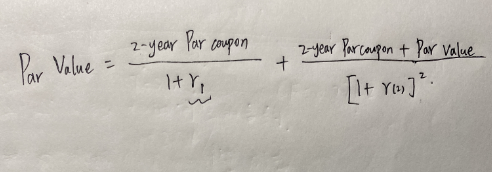 Par Value = 2-year Par coupon / 1 + r₁ + 2-year Par coupon + Par Value / [1 + r(2)]².